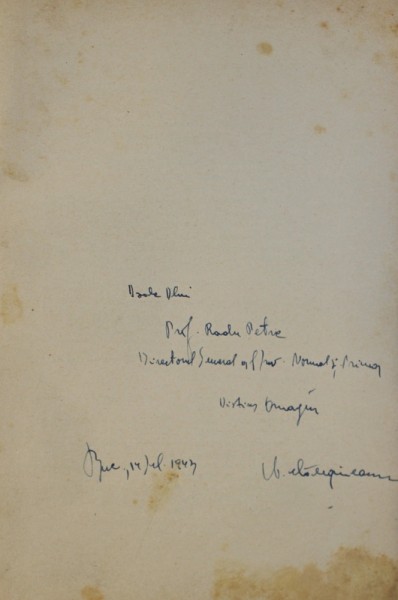 Dsale Dlui
Prof. Radu Petre
Directorul General al Înv. Normal și Primar
Distins Omagiu
Buc., 14 1943